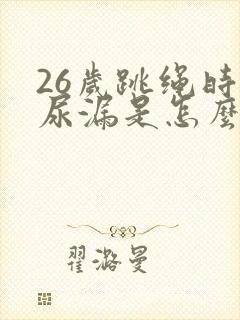 26歲跳绳時
尿漏是怎麼
翟潞曼